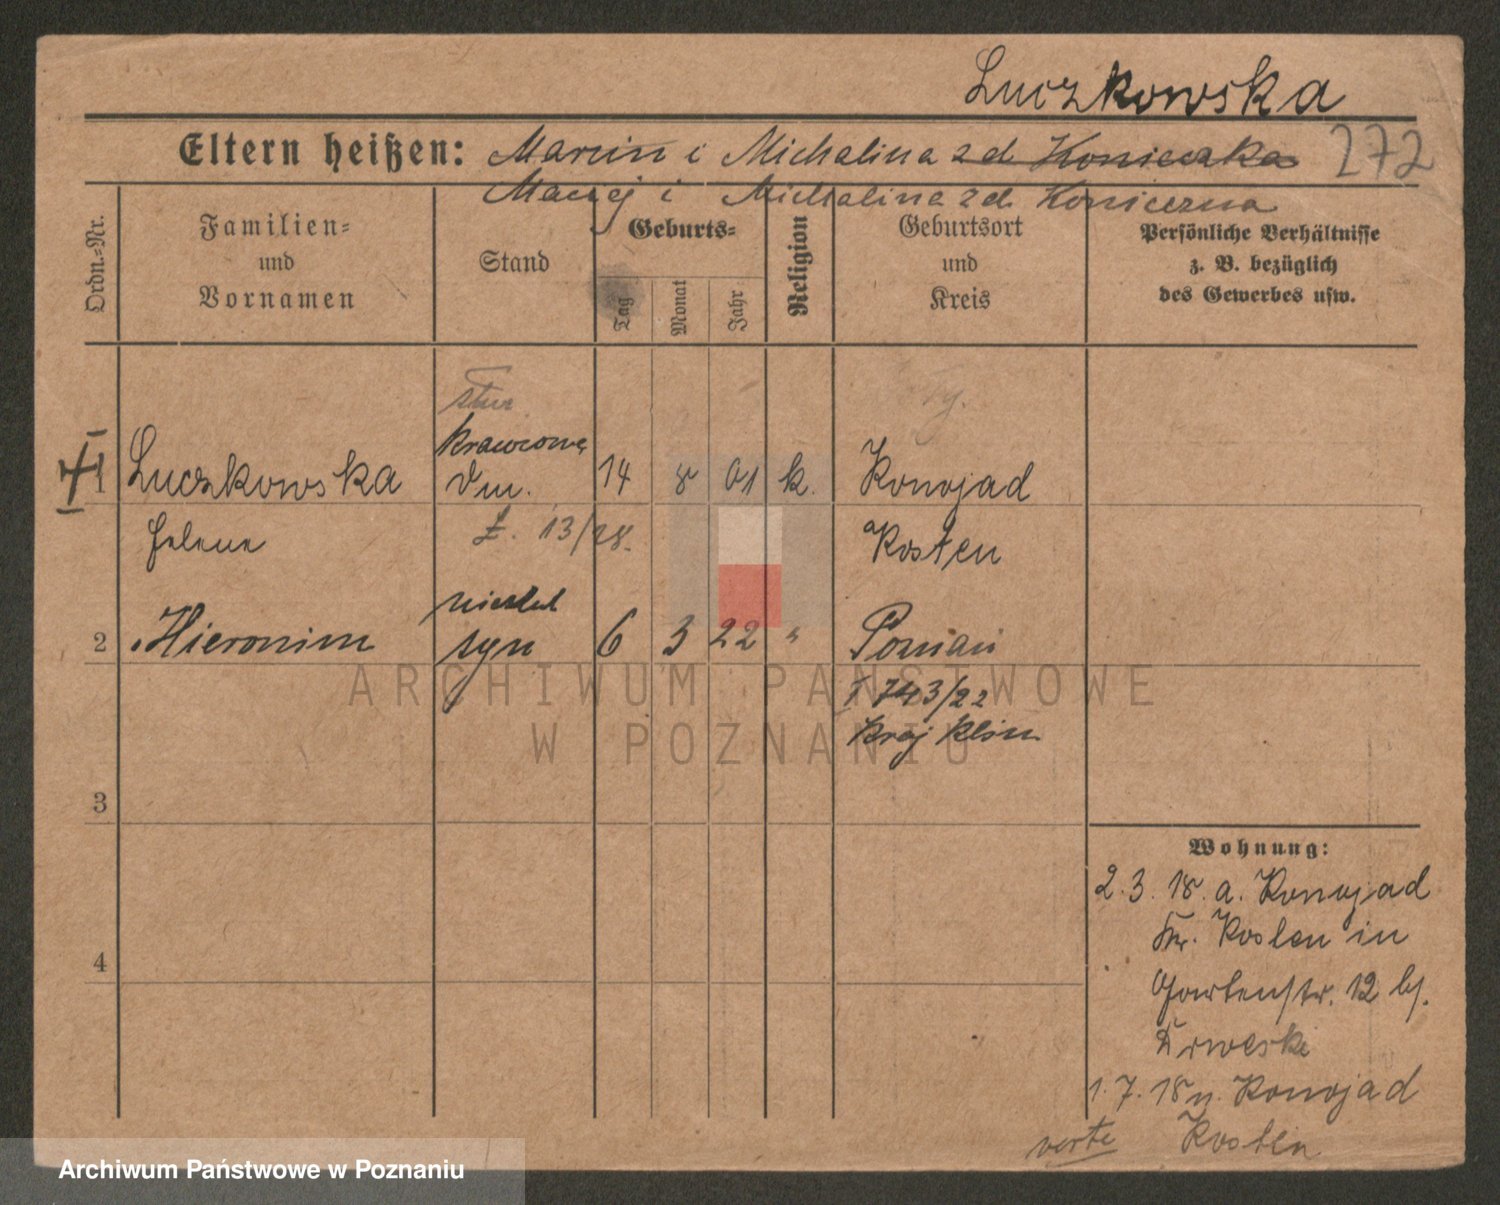 Luczkowska
Eltern heißen: Marcin i Michalina zd Konieczka 272
Maciej i Michalina zd Konieczna
Ordn.-Nr.
Familien-
und
Vornamen
Stand
Geburts-
Tag
Monat
Jahr
Religion
Geburtsort
und
Kreis
Persönliche Verhältnisse
z. B. bezüglich
des Gewerbes usw.
krawcowa
1 Luczkowska Dm. 14 8 01 k. Konojad
Helene Ł. 13/28. Kosten
nieślub
2 Hieronim syn 6 3 22 " Poznań
I 743/22
3
4
Wohnung:
2.3.18. a. Konojad
Kr. Kosten in
Gartenstr. 12 bj.
Drweski
1.7.18 n. Konojad
verte Kosten
ARCHIWUM PAŃSTWOWE
W POZNANIU
Archiwum Państwowe w Poznaniu